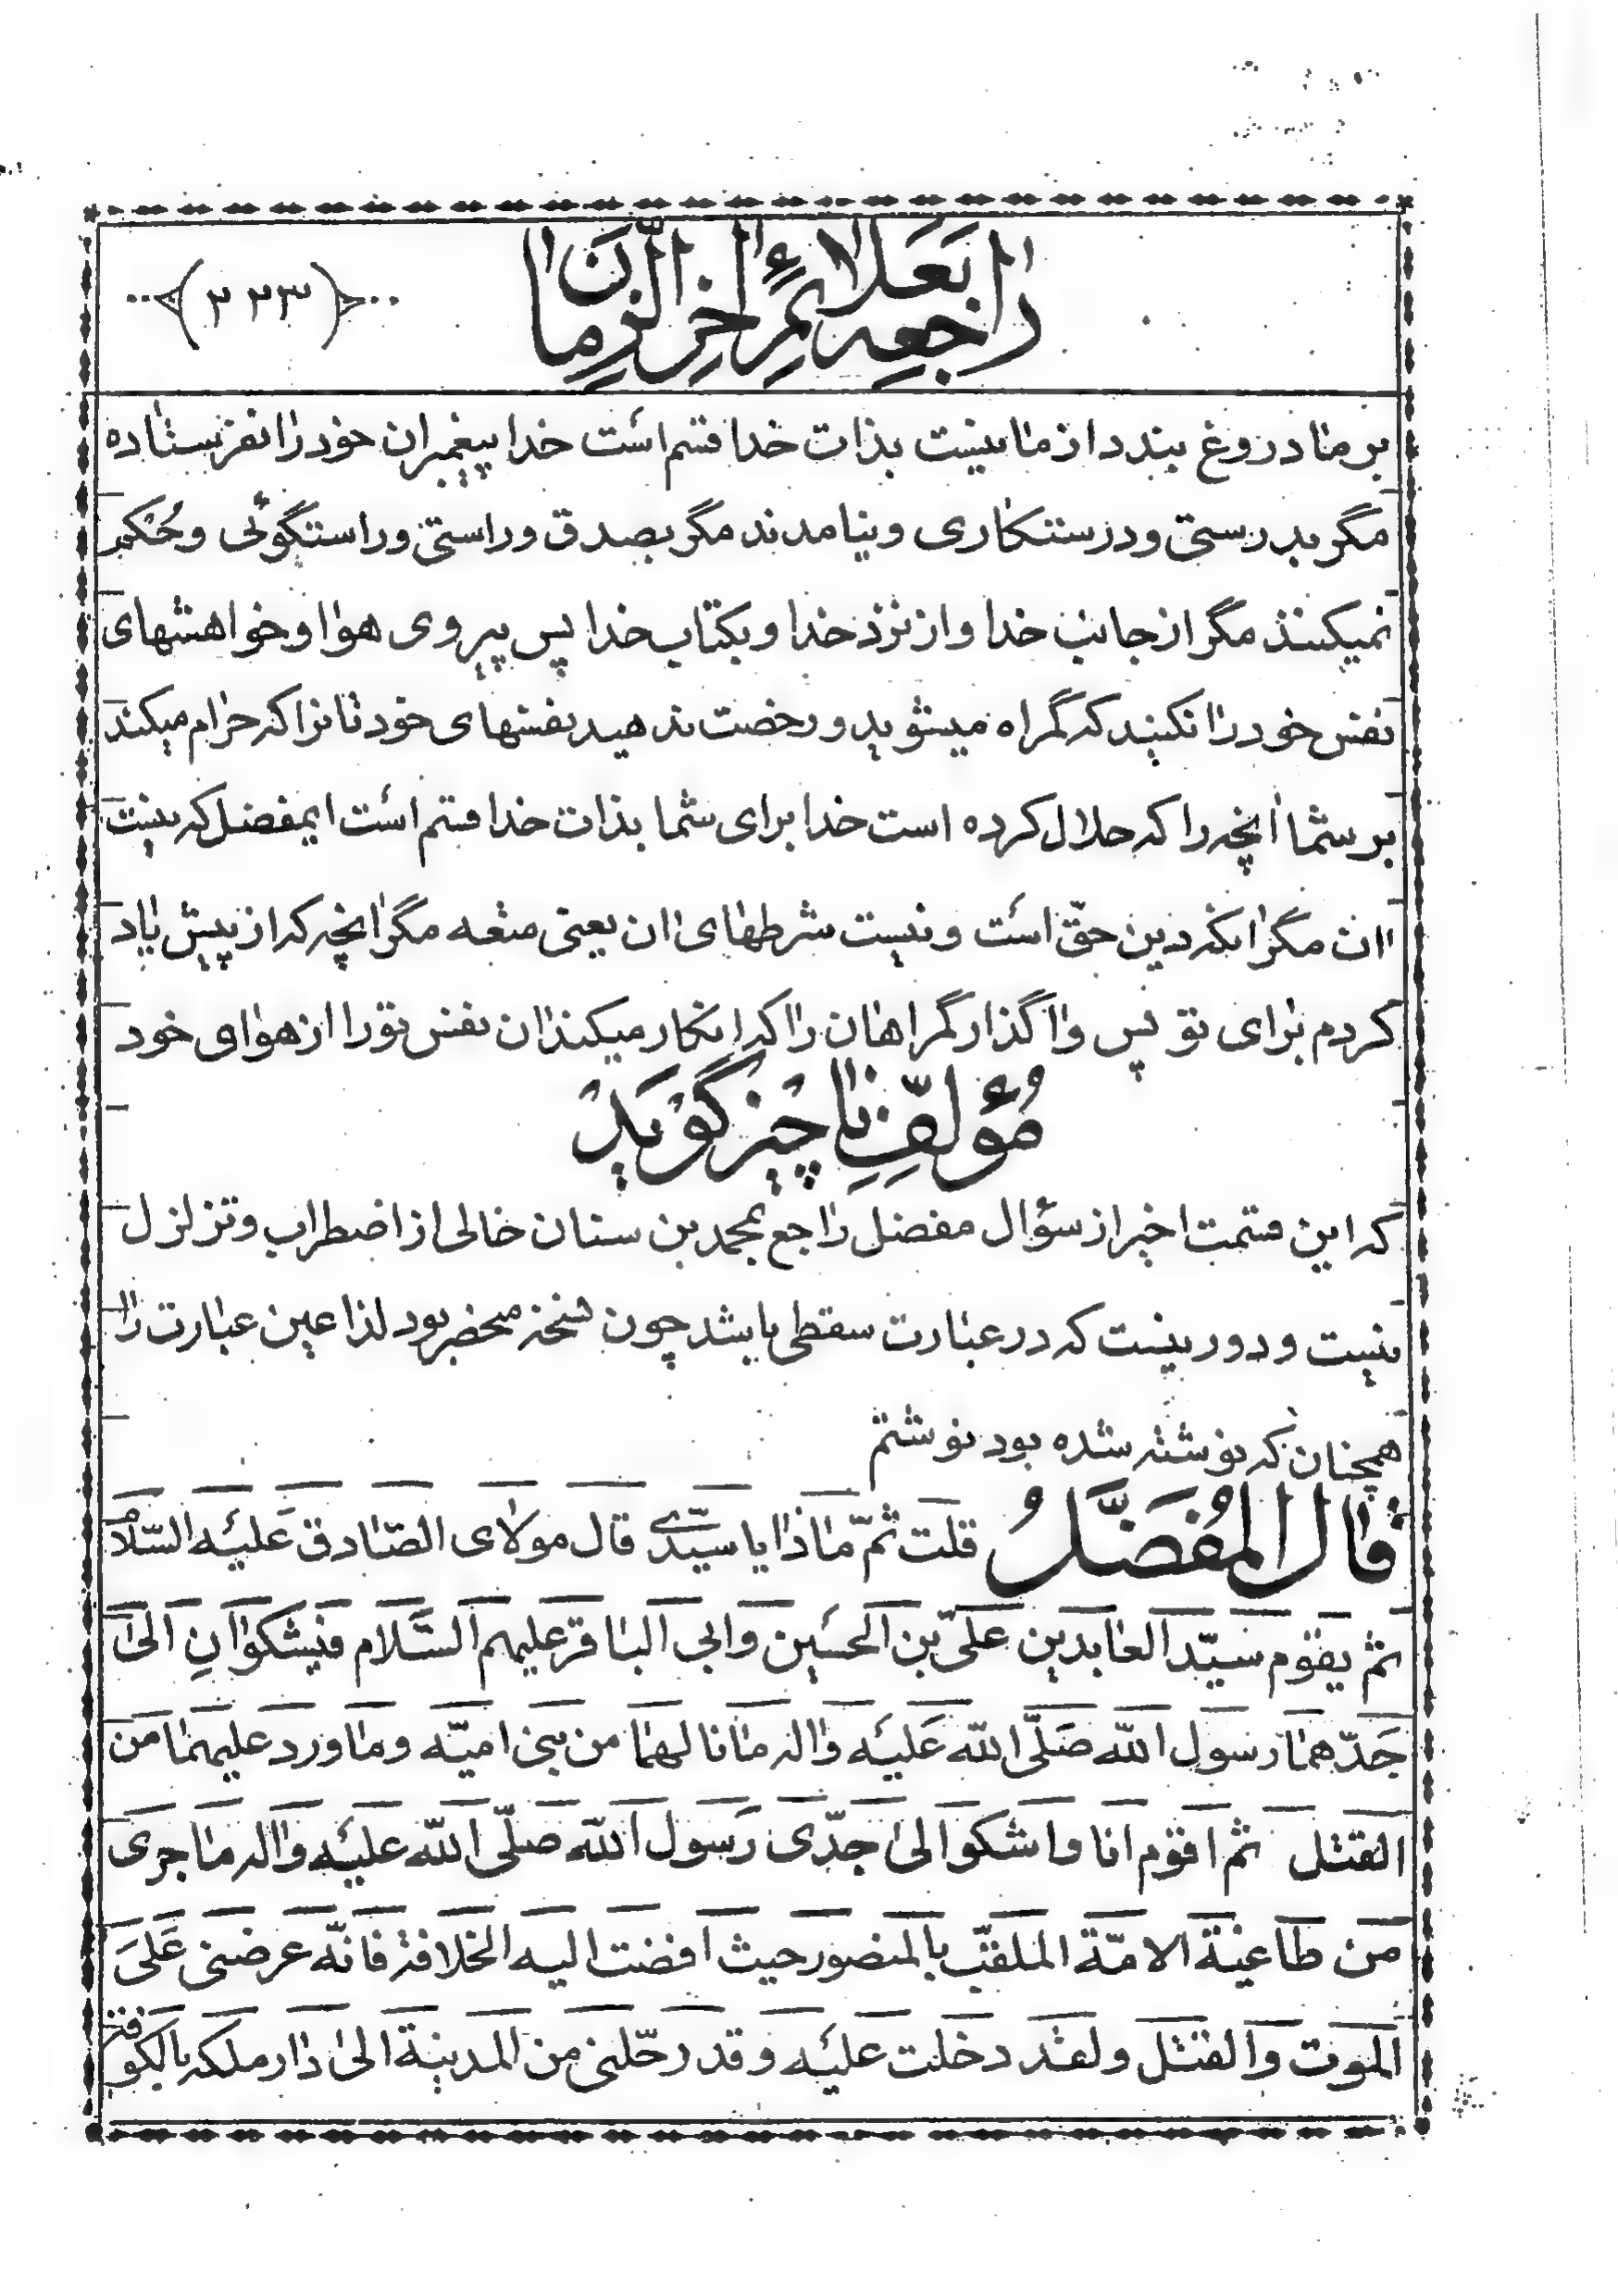 راجعه بعلائم اخر الزمان
(۲۲۳)
بر ما دروغ ببندد از ما نیست بذات خدا قسم است خدا پیغمبران خود را نفرستاده
مگر بدرستی و درستکاری و نیامدند مگر بصدق و راستی و راستگوئی و حکم
نمیکنند مگر از جانب خدا و از نزد خدا و بکتاب خدا پس پیروی هوا و خواهشهای
نفس خود را نکنید که گمراه میشوید و رخصت ندهید نفسهای خودتانرا که حرام میکند
بر شما انچه را که حلال کرده است خدا برای شما بذات خدا قسم است ایمفضل که نیست
ان مگر انکه دین حقّ است و نیست شرطهای ان یعنی متعه مگر انچه که از پیش یاد
کردم برای تو پس واگذار گمراهان را که انکار میکنند ان نفس تو را از هوای خود
مُؤلّفِ ناچیز گوید
که این قسمت اخیر از سؤال مفضل راجع بمحمد بن سنان خالی از اضطراب و تزلزل
نیست و دور نیست که در عبارت سقطی باشد چون نسخه منحضر بود لذا عین عبارت را
همچنان که نوشته شده بود نوشتم
قال المُفَضَّلُ قلت ثمّ ماذا یا سیّدی قال مولای الصّادق علیه السّلام
ثم یقوم سیّد العابدین علیّ بن الحسین وابی الباقر علیهم السَّلام فیشکوانِ الی
جَدّهما رسول اللّه صَلّی اللّه عَلیه واله ما نالهما من بنی امیّه وما ورد علیهما من
القتل ثم اقوم انا واشکو الی جدّی رَسول اللّه صلّی اللّه علیه واله ما جری
من طاغیة الامّة الملقّب بالمنصور حیث افضت الیه الخلافة فانّه عرضنی عَلیَ
الموت والقتل ولقد دخلت علیه وقد رحّلنی من المدینة الی دار ملکه بالکوفة